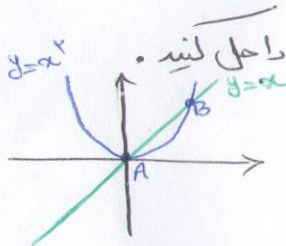 را حل کنید.
y=x²
y=x
B
A